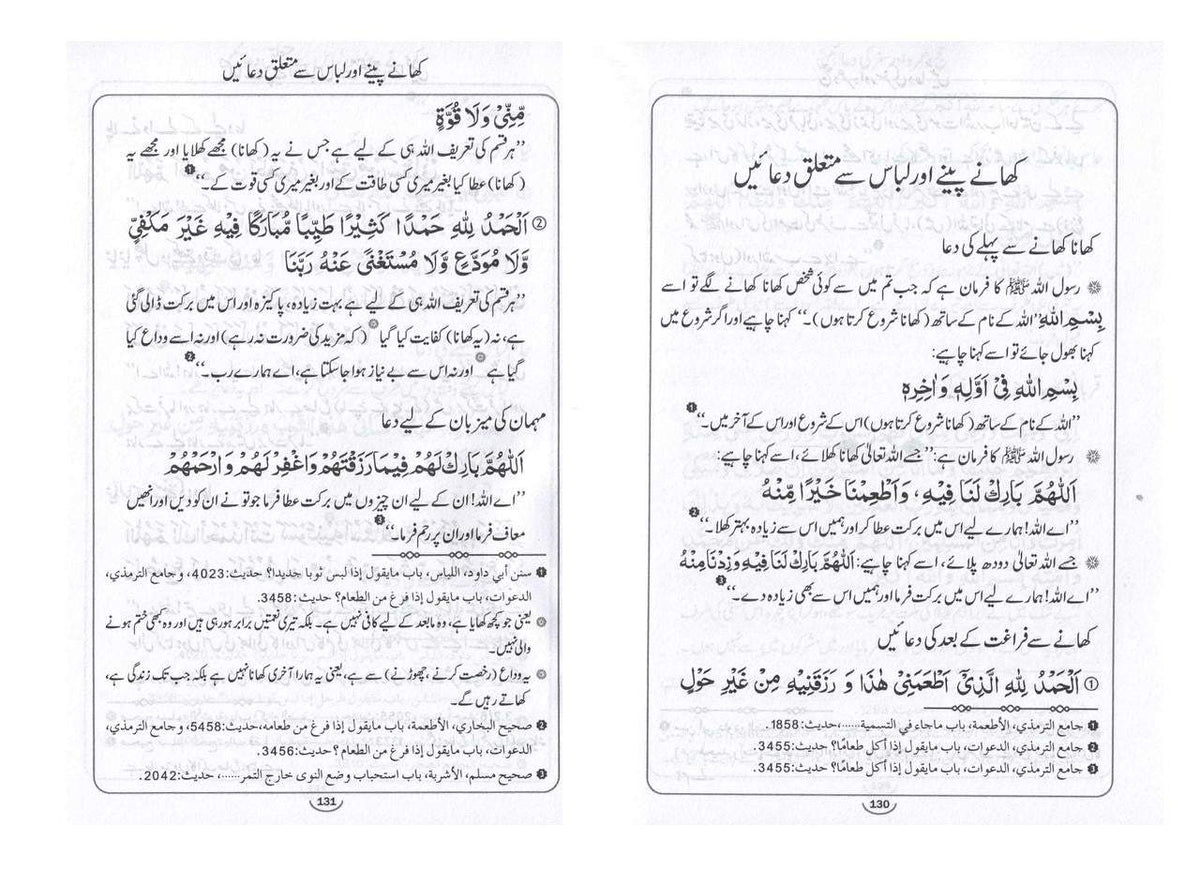 کھانے پینے اور لباس سے متعلق دعائیں
کھانا کھانے سے پہلے کی دعا
رسول اللہ ﷺ کا فرمان ہے کہ جب تم میں سے کوئی شخص کھانا کھانے لگے تو اسے
بِسْمِ اللهِ ’’اللہ کے نام کے ساتھ (کھانا شروع کرتا ہوں)۔‘‘ کہنا چاہیے اور اگر شروع میں
کہنا بھول جائے تو اسے کہنا چاہیے:
بِسْمِ اللهِ فِيْ اَوَّلِهٖ وَاٰخِرِهٖ
’’اللہ کے نام کے ساتھ (کھانا شروع کرتا ہوں) اس کے شروع اور اس کے آخر میں۔‘‘ ❶
رسول اللہ ﷺ کا فرمان ہے: ’’جسے اللہ تعالیٰ کھانا کھلائے، اسے کہنا چاہیے:
اَللّٰهُمَّ بَارِكْ لَنَا فِيْهِ، وَاَطْعِمْنَا خَيْرًا مِّنْهُ
’’اے اللہ! ہمارے لیے اس میں برکت عطا کر اور ہمیں اس سے زیادہ بہتر کھلا۔‘‘ ❷
جسے اللہ تعالیٰ دودھ پلائے، اسے کہنا چاہیے: اَللّٰهُمَّ بَارِكْ لَنَا فِيْهِ وَزِدْنَا مِنْهُ
’’اے اللہ! ہمارے لیے اس میں برکت فرما اور ہمیں اس سے بھی زیادہ دے۔‘‘ ❸
کھانے سے فراغت کے بعد کی دعائیں
① اَلْحَمْدُ لِلّٰهِ الَّذِيْٓ اَطْعَمَنِيْ هٰذَا وَ رَزَقَنِيْهِ مِنْ غَيْرِ حَوْلٍ
❶ جامع الترمذي، الأطعمة، باب ماجاء في التسمية......، حديث:1858.
❷ جامع الترمذي، الدعوات، باب مايقول إذا أكل طعامًا؟ حديث:3455.
❸ جامع الترمذي، الدعوات، باب مايقول إذا أكل طعامًا؟ حديث:3455.
130
کھانے پینے اور لباس سے متعلق دعائیں
مِّنِّيْ وَلَا قُوَّةٍ
’’ہر قسم کی تعریف اللہ ہی کے لیے ہے جس نے یہ (کھانا) مجھے کھلایا اور مجھے یہ
(کھانا) عطا کیا بغیر میری کسی طاقت کے اور بغیر میری کسی قوت کے۔‘‘ ❶
② اَلْحَمْدُ لِلّٰهِ حَمْدًا كَثِيْرًا طَيِّبًا مُّبَارَكًا فِيْهِ غَيْرَ مَكْفِيٍّ
وَّلَا مُوَدَّعٍ وَّلَا مُسْتَغْنًى عَنْهُ رَبَّنَا
’’ہر قسم کی تعریف اللہ ہی کے لیے ہے بہت زیادہ، پاکیزہ اور اس میں برکت ڈالی گئی
ہے، نہ (یہ کھانا) کفایت کیا گیا (کہ مزید کی ضرورت نہ رہے) اور نہ اسے وداع کیا
گیا ہے اور نہ اس سے بے نیاز ہوا جا سکتا ہے، اے ہمارے رب۔‘‘ ❷
مہمان کی میزبان کے لیے دعا
اَللّٰهُمَّ بَارِكْ لَهُمْ فِيْمَا رَزَقْتَهُمْ وَاغْفِرْ لَهُمْ وَارْحَمْهُمْ
’’اے اللہ! ان کے لیے ان چیزوں میں برکت عطا فرما جو تو نے ان کو دیں اور انھیں
معاف فرما اور ان پر رحم فرما۔‘‘ ❸
❶ سنن أبي داود، اللباس، باب مايقول إذا لبس ثوبا جديدا؟ حديث:4023، و جامع الترمذي،
الدعوات، باب مايقول إذا فرغ من الطعام؟ حديث:3458.
یعنی جو کچھ کھایا ہے، وہ مابعد کے لیے کافی نہیں ہے۔ بلکہ تیری نعمتیں برابر ہو رہی ہیں اور وہ کبھی ختم ہونے
والی نہیں۔
یہ وداع (رخصت کرنے، چھوڑنے) سے ہے، یعنی یہ ہمارا آخری کھانا نہیں ہے بلکہ جب تک زندگی ہے،
کھاتے رہیں گے۔
❷ صحيح البخاري، الأطعمة، باب مايقول إذا فرغ من طعامه، حديث:5458، و جامع الترمذي،
الدعوات، باب مايقول إذا فرغ من الطعام؟ حديث:3456.
❸ صحيح مسلم، الأشربة، باب استحباب وضع النوى خارج التمر......، حديث:2042.
131